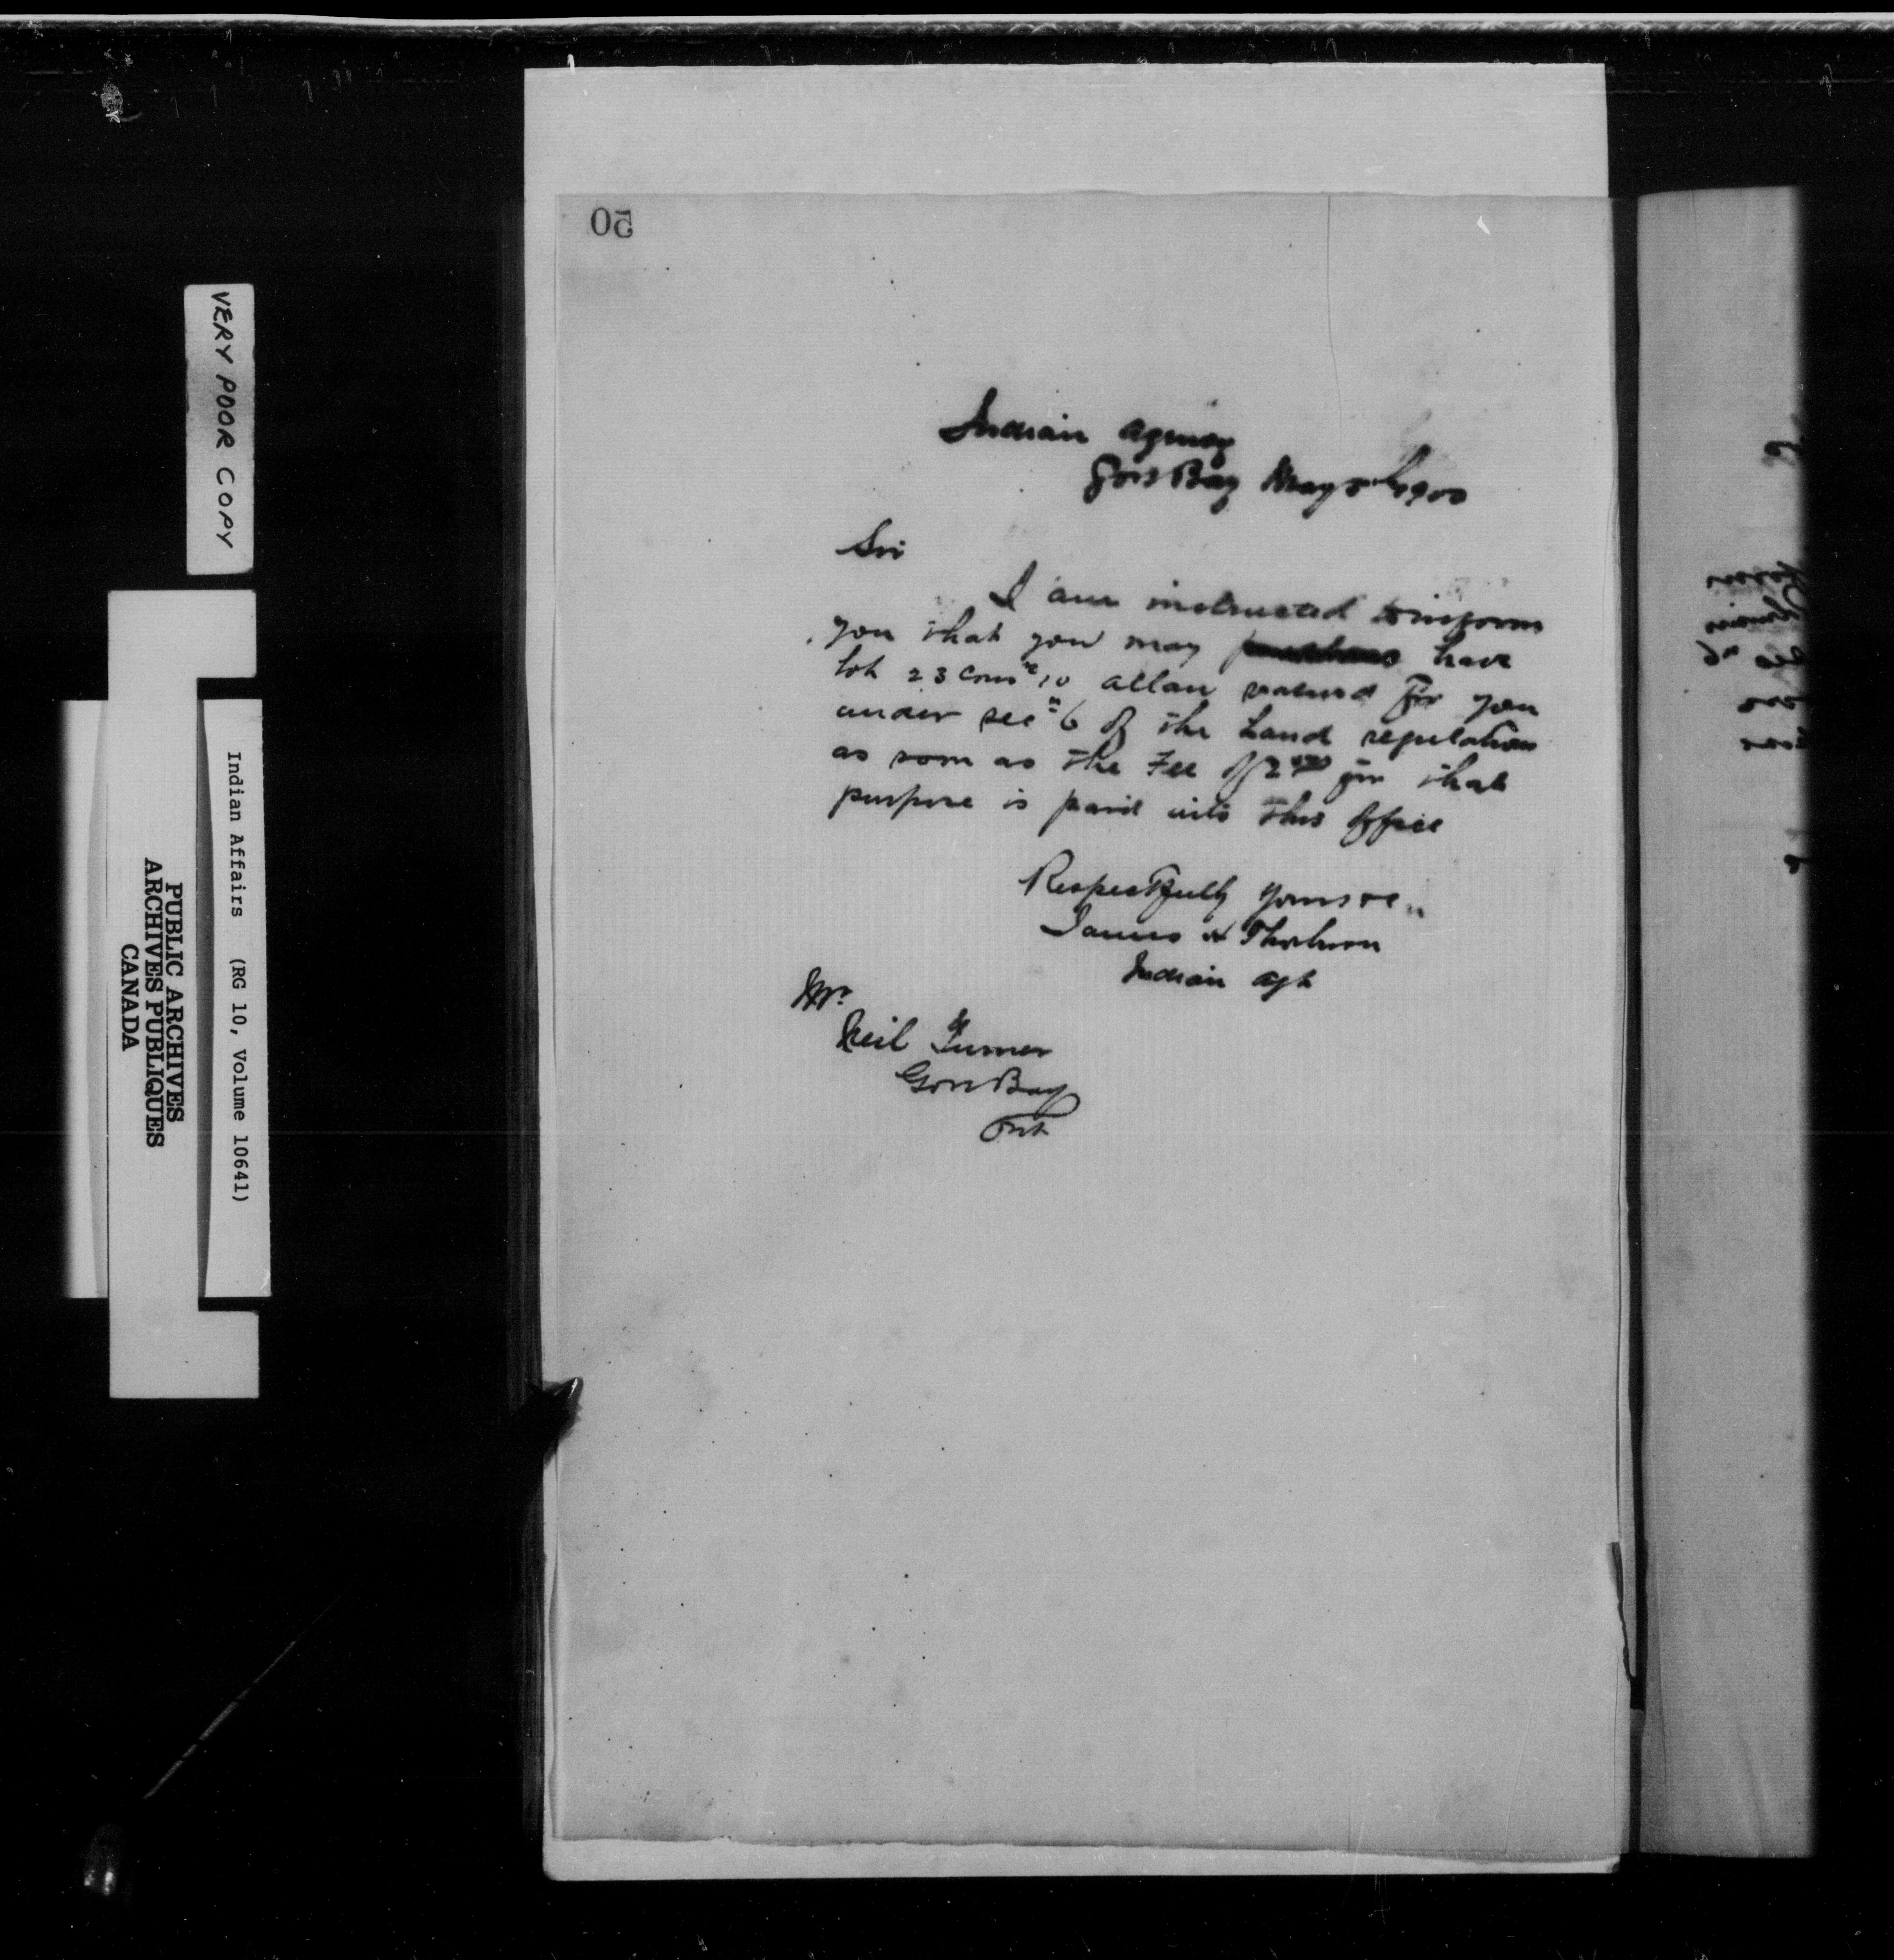 50
Indian Agency
Gore Bay May 5th 1900
Sir
I am instructed to inform
you that you may have
Lot 23 Conn 10 Allan valued for you
under secn 6 of the Land regulations
as soon as the Fee of 2 for that
purpose is paid into this office
Respectfully yours &c
James H Thorburn
Indian Agt
Mr
Neil Turner
Gore Bay
Ont
VERY POOR COPY
Indian Affairs (RG 10, Volume 10641)
PUBLIC ARCHIVES
ARCHIVES PUBLIQUES
CANADA